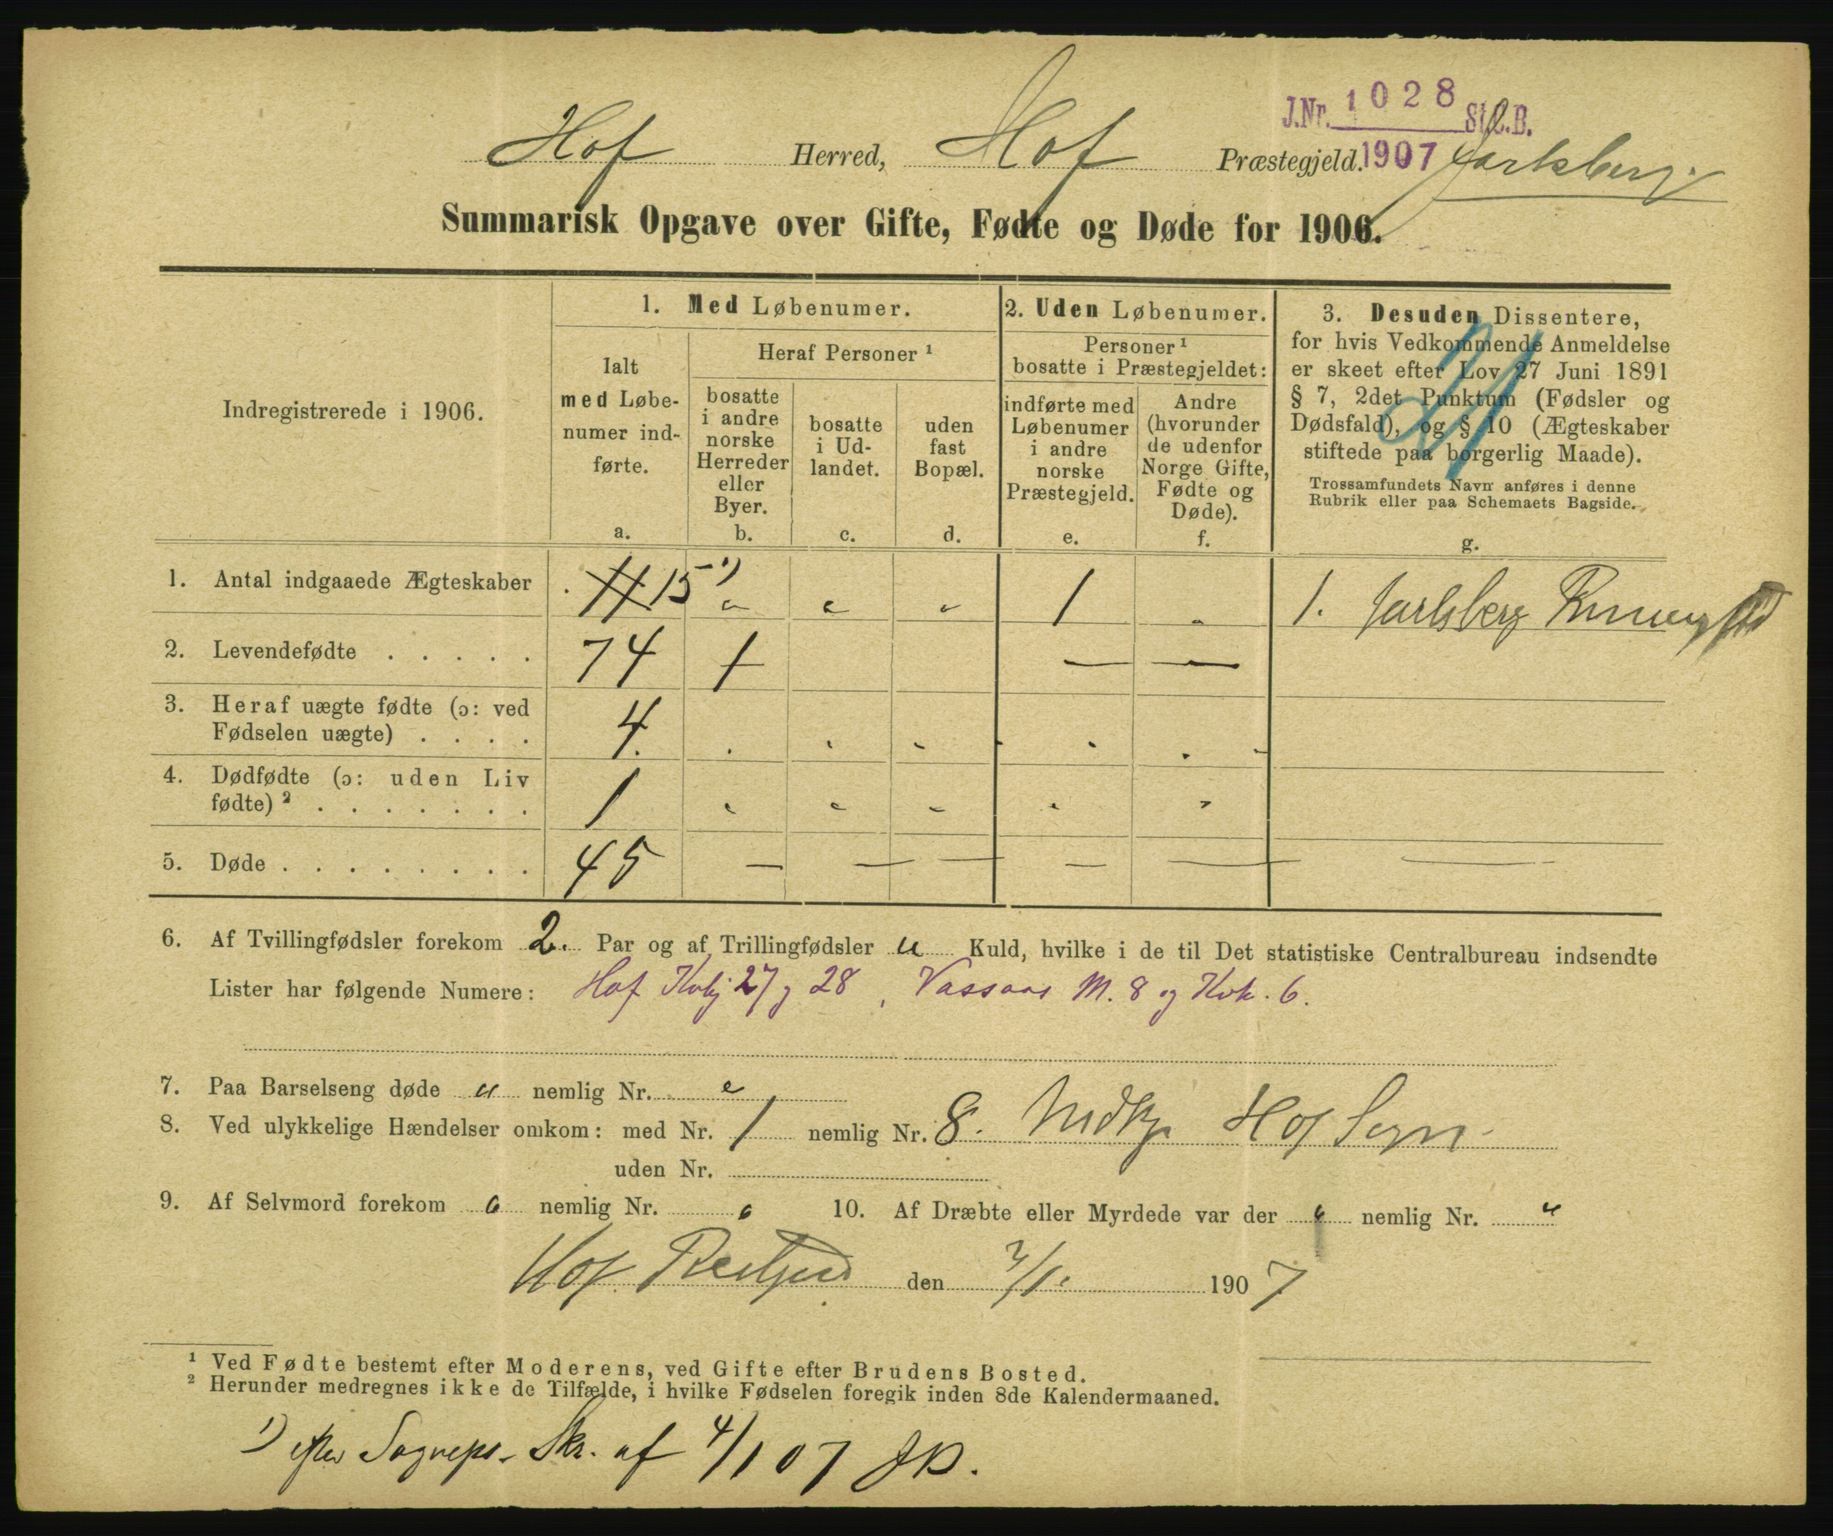 J.Nr. 1028 St.C.B.
1907
Hof Herred, Hof Præstegjeld. Jarlsberg.
Summarisk Opgave over Gifte, Fødte og Døde for 1906.
Indregistrerede i 1906.
1. Med Løbenumer.
Ialt
med Løbe-
numer ind-
førte.
a.
Heraf Personer ¹
bosatte
i andre
norske
Herreder
eller
Byer.
b.
bosatte
i Ud-
landet.
c.
uden
fast
Bopæl.
d.
2. Uden Løbenumer.
Personer ¹
bosatte i Præstegjeldet:
indførte med
Løbenumer
i andre
norske
Præstegjeld.
e.
Andre
(hvorunder
de udenfor
Norge Gifte,
Fødte og
Døde).
f.
3. Desuden Dissentere,
for hvis Vedkommende Anmeldelse
er skeet efter Lov 27 Juni 1891
§ 7, 2det Punktum (Fødsler og
Dødsfald), og § 10 (Ægteskaber
stiftede paa borgerlig Maade).
Trossamfundets Navn anføres i denne
Rubrik eller paa Schemaets Bagside.
g.
1. Antal indgaaede Ægteskaber 11 15 ¹) " " " 1 " 1. Jarlsberg
2. Levendefødte . . . . . 74 1 — —
3. Heraf uægte fødte (ɔ: ved
Fødselen uægte) . . . . 4. . . . . .
4. Dødfødte (ɔ: uden Liv
fødte) ² . . . . . . . 1 " " " " "
5. Døde . . . . . . . . 45 — — — — — —
6. Af Tvillingfødsler forekom 2. Par og af Trillingfødsler " Kuld, hvilke i de til Det statistiske Centralbureau indsendte
Lister har følgende Numere: Hof Kvkj 27 og 28, Vassaas M. 8 og Kvk. 6.
7. Paa Barselseng døde " nemlig Nr. "
8. Ved ulykkelige Hændelser omkom: med Nr. 1 nemlig Nr. 8. Mdkj. Hof Sogn.
uden Nr.
9. Af Selvmord forekom " nemlig Nr. " 10. Af Dræbte eller Myrdede var der " nemlig Nr. "
Hof Prestgjeld den 2/1. 1907
¹ Ved Fødte bestemt efter Moderens, ved Gifte efter Brudens Bosted.
² Herunder medregnes ikke de Tilfælde, i hvilke Fødselen foregik inden 8de Kalendermaaned.
¹) efter Sogneps. Skr. af 4/1 07 JB.